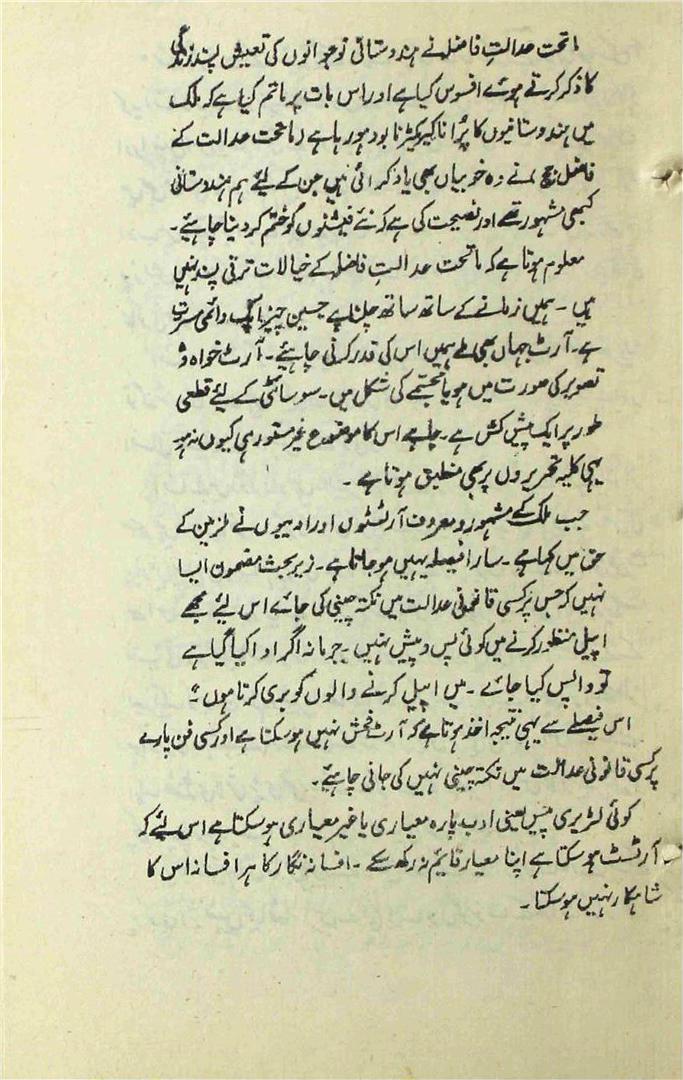 ماتحت عدالتِ فاضلہ نے ہندوستانی نوجوانوں کی تعیش پسند زندگی
کا ذکر کرتے ہوئے افسوس کیا ہے اور اس بات پر ماتم کیا ہے کہ ملک
میں ہندوستانیوں کا پرانا کیریکٹر نابود ہو رہا ہے۔ ماتحت عدالت کے
فاضل جج نے وہ خوبیاں بھی یاد کرائی ہیں جن کے لیئے ہم ہندوستانی
کبھی مشہور تھے اور نصیحت کی ہے کہ نئے فیشنوں کو ختم کر دینا چاہیئے۔
معلوم ہوتا ہے کہ ماتحت عدالتِ فاضلہ کے خیالات ترقی پسند نہیں
ہیں۔ ہمیں زمانے کے ساتھ ساتھ چلنا ہے حسین چیز ایک دائمی مسرت
ہے۔ آرٹ جہاں بھی ملے ہمیں اس کی قدر کرنی چاہیئے۔ آرٹ خواہ وہ
تصویر کی صورت میں ہو یا مجسمے کی شکل میں۔ سوسائٹی کے لیئے قطعی
طور پر ایک پیش کش ہے۔ چاہے اس کا موضوع غیر مستور ہی کیوں نہ ہو
یہی کلیہ تحریروں پر بھی منطبق ہوتا ہے۔
جب ملک کے مشہور و معروف آرٹسٹوں اور ادیبوں نے ملزمین کے
حق میں کہا ہے۔ سارا فیصلہ یہیں ہو جاتا ہے۔ زیر بحث مضمون ایسا
نہیں کہ جس پر کسی قانونی عدالت میں نکتہ چینی کی جائے اس لیئے مجھے
اپیل منظور کرنے میں کوئی پس و پیش نہیں۔ جرمانہ اگر ادا کیا گیا ہے
تو واپس کیا جائے۔ میں اپیل کرنے والوں کو بری کرتا ہوں؛
اس فیصلے سے یہی نتیجہ اخذ ہوتا ہے کہ آرٹ فحش نہیں ہو سکتا ہے اور کسی فن پارے
پر کسی قانونی عدالت میں نکتہ چینی نہیں کی جانی چاہیئے۔
کوئی لٹریری پیس یعنی ادب پارہ معیاری یا غیر معیاری ہو سکتا ہے اس لئے کہ
آرٹسٹ ہو سکتا ہے اپنا معیار قائم نہ رکھ سکے۔ افسانہ نگار کا ہر افسانہ اس کا
شاہکار نہیں ہو سکتا۔